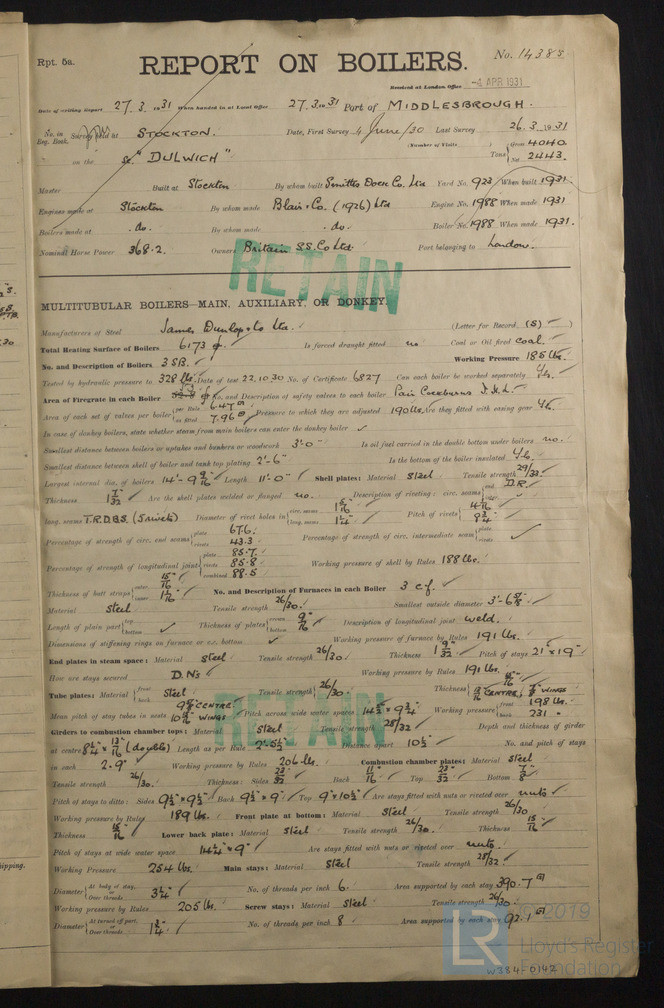 Rpt. 5a.
REPORT ON BOILERS.
No. 14385
Received at London Office -4 APR 1931
Date of writing Report 27.3.1931 When handed in at Local Office 27.3.1931 Port of MIDDLESBROUGH.
No. in Reg. Book. Survey held at STOCKTON. Date, First Survey 4 June/30 Last Survey 26.3.1931
(Number of Visits
on the S.S. "DULWICH" Tons Gross 4040. Net 2443.
Master Built at Stockton By whom built Smiths Dock Co. Ltd Yard No. 923 When built 1931.
Engines made at Stockton By whom made Blair & Co. (1926) Ltd Engine No. 1988 When made 1931
Boilers made at do. By whom made do. Boiler No. 1988 When made 1931.
Nominal Horse Power 368.2. Owners Britain S.S. Co Ltd. Port belonging to London.
RETAIN
MULTITUBULAR BOILERS—MAIN, AUXILIARY, OR DONKEY.
Manufacturers of Steel James Dunlop & Co Ltd. (Letter for Record (S) )
Total Heating Surface of Boilers 6173 Is forced draught fitted no Coal or Oil fired coal.
No. and Description of Boilers 3 SB. Working Pressure 185 lbs.
Tested by hydraulic pressure to 328 lbs. Date of test 22.10.30 No. of Certificate 6827 Can each boiler be worked separately Yes.
Area of Firegrate in each Boiler No. and Description of safety valves to each boiler Pair Cockburns I.H.L.
Area of each set of valves per boiler per Rule 6.47 as fitted 7.96 Pressure to which they are adjusted 190 lbs. Are they fitted with easing gear Yes.
In case of donkey boilers, state whether steam from main boilers can enter the donkey boiler ✓
Smallest distance between boilers or uptakes and bunkers or woodwork 3'-0" Is oil fuel carried in the double bottom under boilers no.
Smallest distance between shell of boiler and tank top plating 2'-6" Is the bottom of the boiler insulated Yes.
Largest internal dia. of boilers 14'-9 9/16" Length 11'-0" Shell plates: Material steel Tensile strength 29/33
Thickness 1 7/32 Are the shell plates welded or flanged no. Description of riveting: circ. seams end D.R. inter.
long. seams T.R.D.B.S. (5 rivets) Diameter of rivet holes in circ. seams 1 5/16 long. seams 1 1/4 Pitch of rivets 8 3/4
Percentage of strength of circ. end seams plate 67.6. rivets 43.3 Percentage of strength of circ. intermediate seam plate rivets ✓
Percentage of strength of longitudinal joint plate 85.7. rivets 85.8 combined 88.5 Working pressure of shell by Rules 188 lbs.
Thickness of butt straps outer 15/16 inner 1 1/16 No. and Description of Furnaces in each Boiler 3 c.f.
Material steel Tensile strength 26/30. Smallest outside diameter 3'-6 5/8"
Length of plain part top bottom ✓ Thickness of plates crown bottom 9/16 Description of longitudinal joint weld.
Dimensions of stiffening rings on furnace or c.c. bottom ✓ Working pressure of furnace by Rules 191 lbs.
End plates in steam space: Material steel Tensile strength 26/30 Thickness 1 9/32 Pitch of stays 21" × 19"
How are stays secured D.Ns Working pressure by Rules 191 lbs.
Tube plates: Material front back steel Tensile strength 26/30. Thickness CENTRE; WINGS
Mean pitch of stay tubes in nests CENTRE. 10 1/2" WINGS Pitch across wide water spaces 14 1/2 × 9 1/4" Working pressure front 198 lbs. back 231.
RETAIN
Girders to combustion chamber tops: Material steel Tensile strength 28/32 Depth and thickness of girder
at centre 8 3/4" × 13/16" (double) Length as per Rule 2'-5 1/2" Distance apart 10 1/2" No. and pitch of stays
in each 2-9" Working pressure by Rules 206 lbs. Combustion chamber plates: Material steel
Tensile strength 26/30. Thickness: Sides 23/32 Back 11/16 Top 23/32 Bottom 7/8
Pitch of stays to ditto: Sides 9 1/2" × 9 1/2" Back 9 1/2" × 9" Top 9" × 10 1/2" Are stays fitted with nuts or riveted over nuts
Working pressure by Rules 189 lbs. Front plate at bottom: Material steel Tensile strength 26/30
Thickness 15/16 Lower back plate: Material steel Tensile strength 26/30. Thickness 15/16
Pitch of stays at wide water space 14 1/2" × 9" Are stays fitted with nuts or riveted over nuts.
Working Pressure 254 lbs. Main stays: Material steel Tensile strength 28/32
Diameter At body of stay, or Over threads 3 1/4" No. of threads per inch 6. Area supported by each stay 390.7
Working pressure by Rules 205 lbs. Screw stays: Material steel Tensile strength 26/30.
Diameter At turned off part, or Over threads 1 3/4" No. of threads per inch 8 Area supported by each stay 92.1
© 2019
LR Lloyd's Register Foundation
W384-0142
hipping.